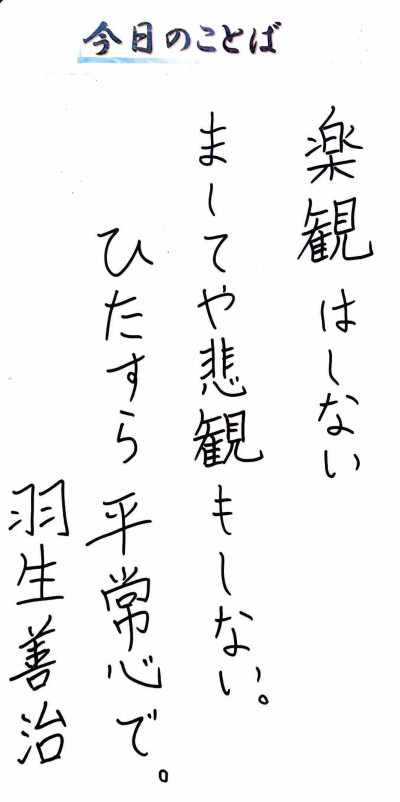 今日のことば
楽観はしない
ましてや悲観もしない。
ひたすら平常心で。
羽生善治